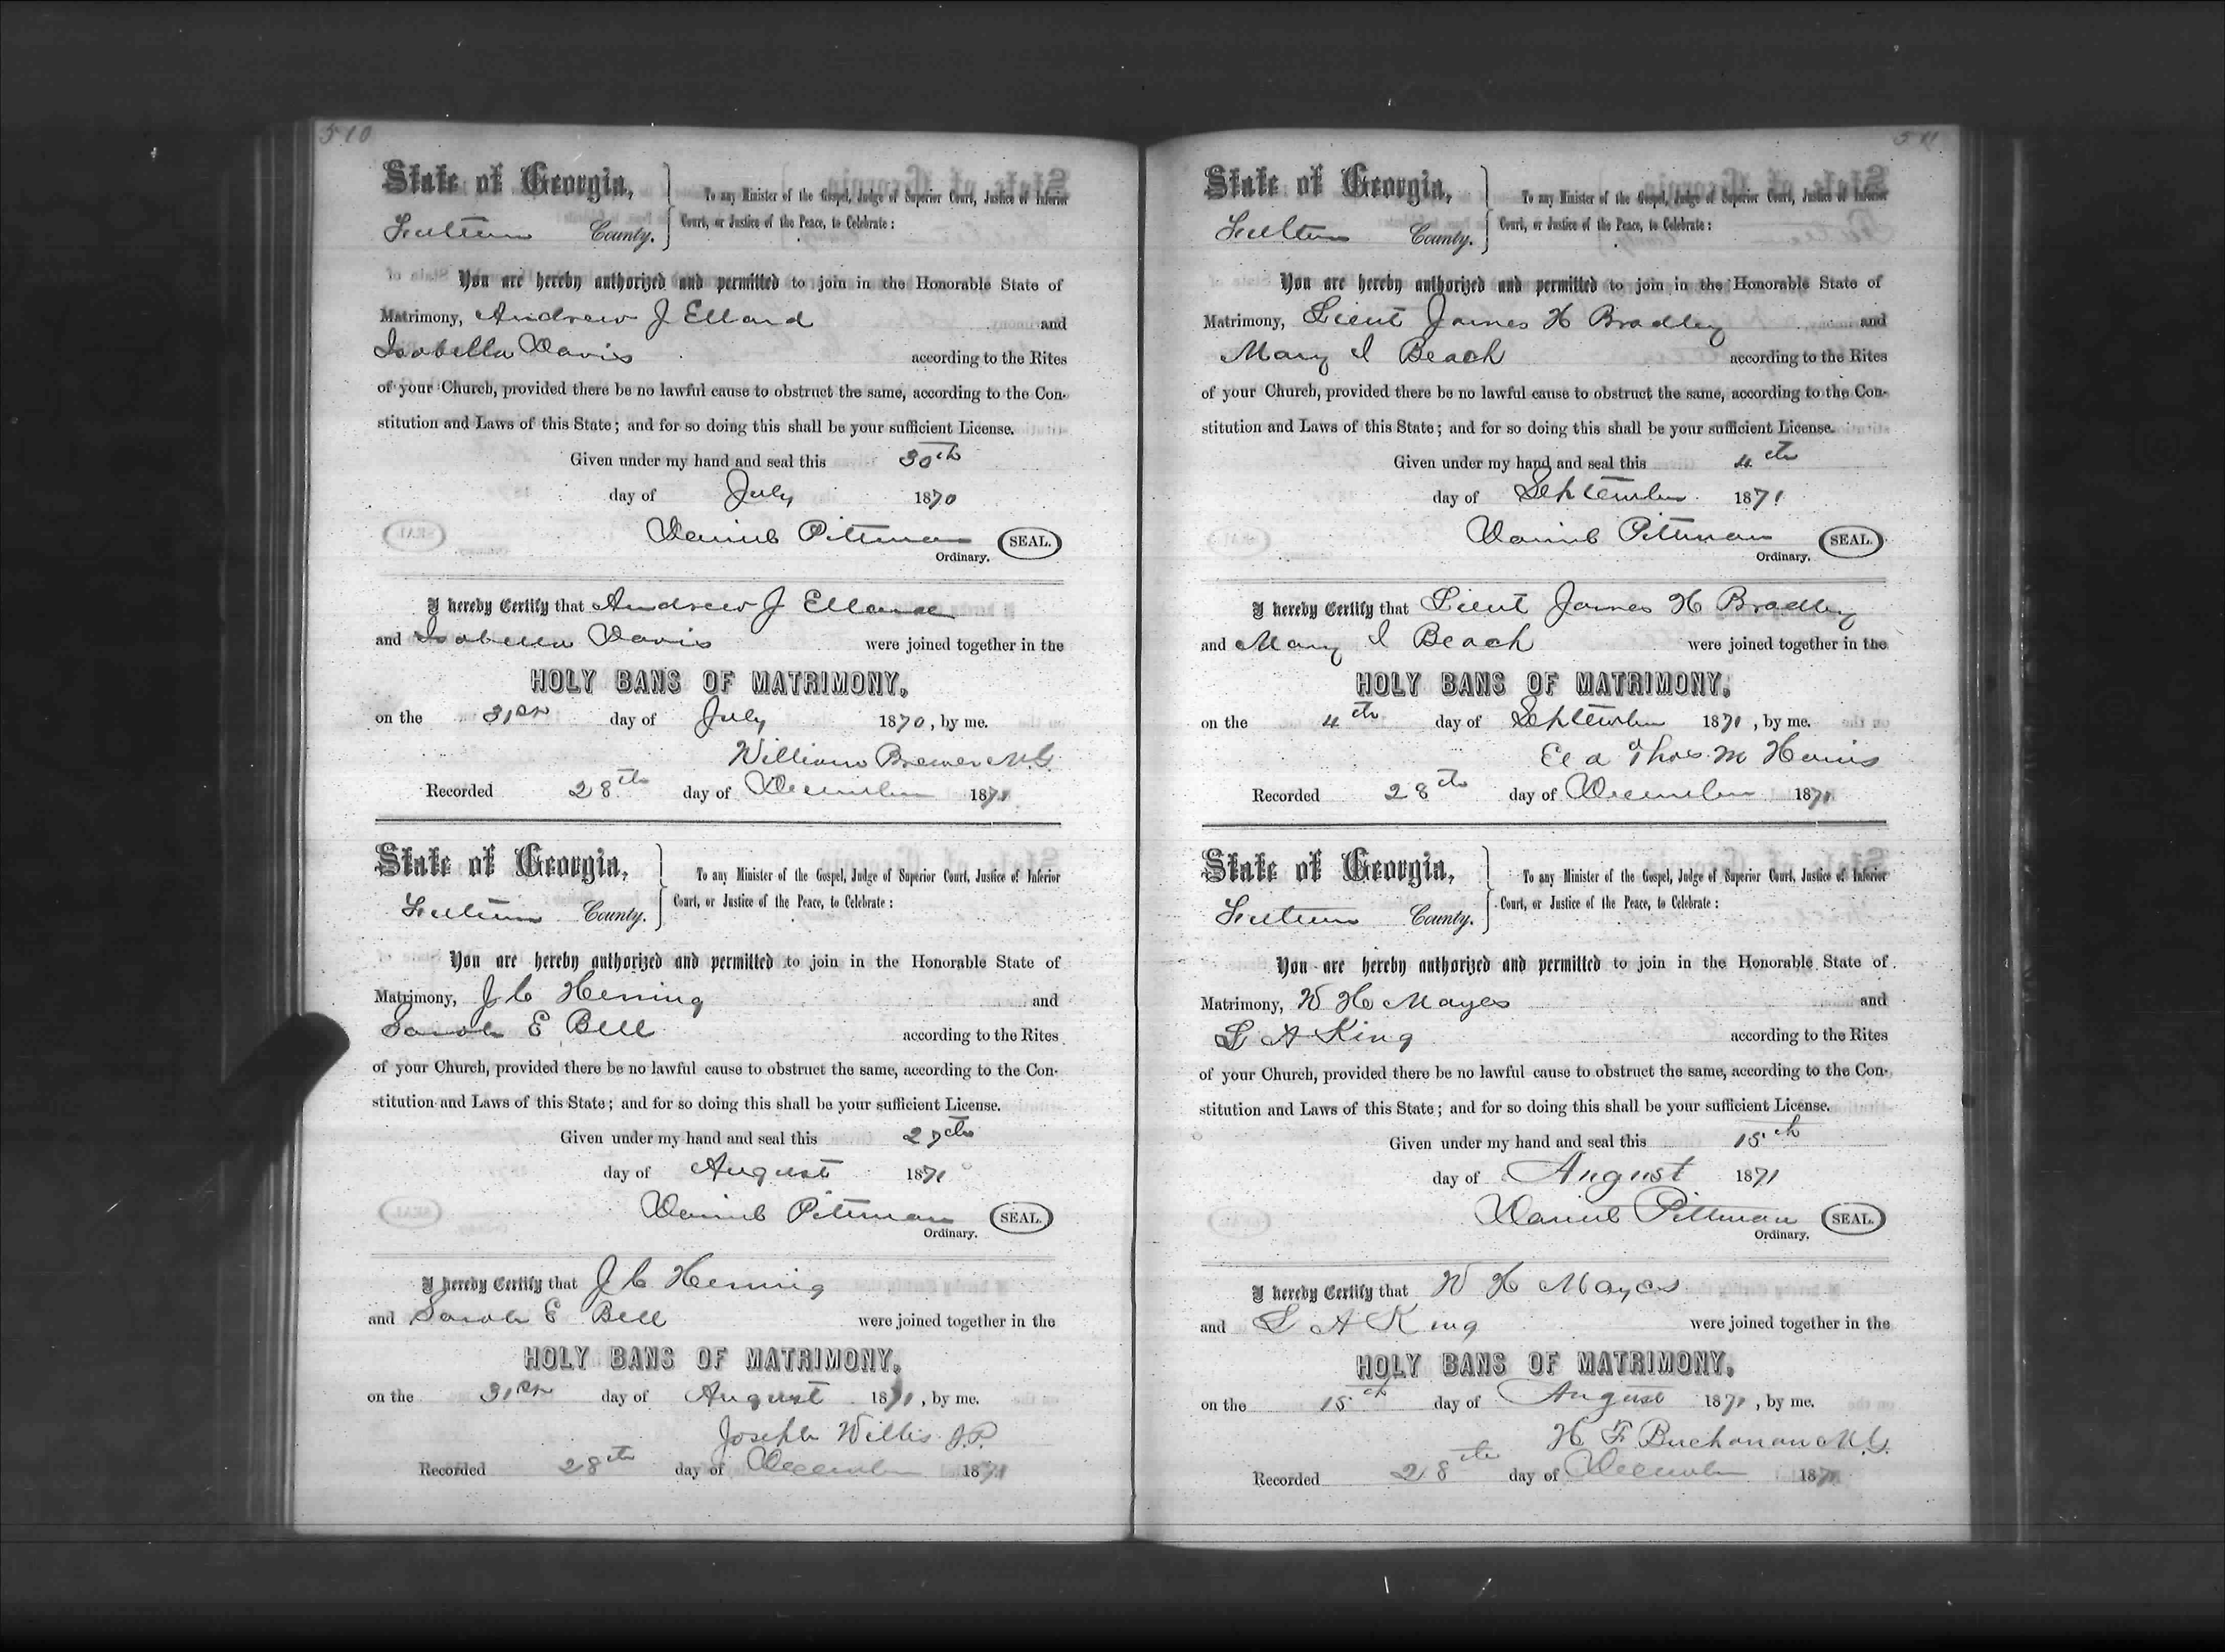 510
State of Georgia,
Fulton County.
To any Minister of the Gospel, Judge of Superior Court, Justice of Inferior
Court, or Justice of the Peace, to Celebrate :
You are hereby authorized and permitted to join in the Honorable State of
Matrimony, Andrew J Ellard and
Isabella Davis according to the Rites
of your Church, provided there be no lawful cause to obstruct the same, according to the Con-
stitution and Laws of this State; and for so doing this shall be your sufficient License.
Given under my hand and seal this 30th
day of July 1870
Daniel Pittman SEAL.
Ordinary.
I hereby Certify that Andrew J Ellard
and Isabella Davis were joined together in the
HOLY BANS OF MATRIMONY,
on the 31st day of July 1870, by me.
William Brewer M.G.
Recorded 28th day of December 1871
State of Georgia,
Fulton County.
To any Minister of the Gospel, Judge of Superior Court, Justice of Inferior
Court, or Justice of the Peace, to Celebrate :
You are hereby authorized and permitted to join in the Honorable State of
Matrimony, J C and
Sarah E Bell according to the Rites
of your Church, provided there be no lawful cause to obstruct the same, according to the Con-
stitution and Laws of this State; and for so doing this shall be your sufficient License.
Given under my hand and seal this 27th
day of August 1871
Daniel Pittman SEAL.
Ordinary.
I hereby Certify that J C
and Sarah E Bell were joined together in the
HOLY BANS OF MATRIMONY,
on the 31st day of August 1871, by me.
Joseph Willis J.P.
Recorded 28th day of December 1871
511
State of Georgia,
Fulton County.
To any Minister of the Gospel, Judge of Superior Court, Justice of Inferior
Court, or Justice of the Peace, to Celebrate :
You are hereby authorized and permitted to join in the Honorable State of
Matrimony, Lieut James H Bradley and
Mary I Beach according to the Rites
of your Church, provided there be no lawful cause to obstruct the same, according to the Con-
stitution and Laws of this State; and for so doing this shall be your sufficient License.
Given under my hand and seal this 4th
day of September 1871
Daniel Pittman SEAL.
Ordinary.
I hereby Certify that Lieut James H Bradley
and Mary I Beach were joined together in the
HOLY BANS OF MATRIMONY,
on the 4th day of September 1871, by me.
Eld Thos M Harris
Recorded 28th day of December 1871
State of Georgia,
Fulton County.
To any Minister of the Gospel, Judge of Superior Court, Justice of Inferior
Court, or Justice of the Peace, to Celebrate :
You are hereby authorized and permitted to join in the Honorable State of
Matrimony, W H Mayes and
L A King according to the Rites
of your Church, provided there be no lawful cause to obstruct the same, according to the Con-
stitution and Laws of this State; and for so doing this shall be your sufficient License.
Given under my hand and seal this 15th
day of August 1871
Daniel Pittman SEAL.
Ordinary.
I hereby Certify that W H Mayes
and L A King were joined together in the
HOLY BANS OF MATRIMONY,
on the 15th day of August 1871, by me.
H F Buchanan M.G.
Recorded 28th day of December 1871